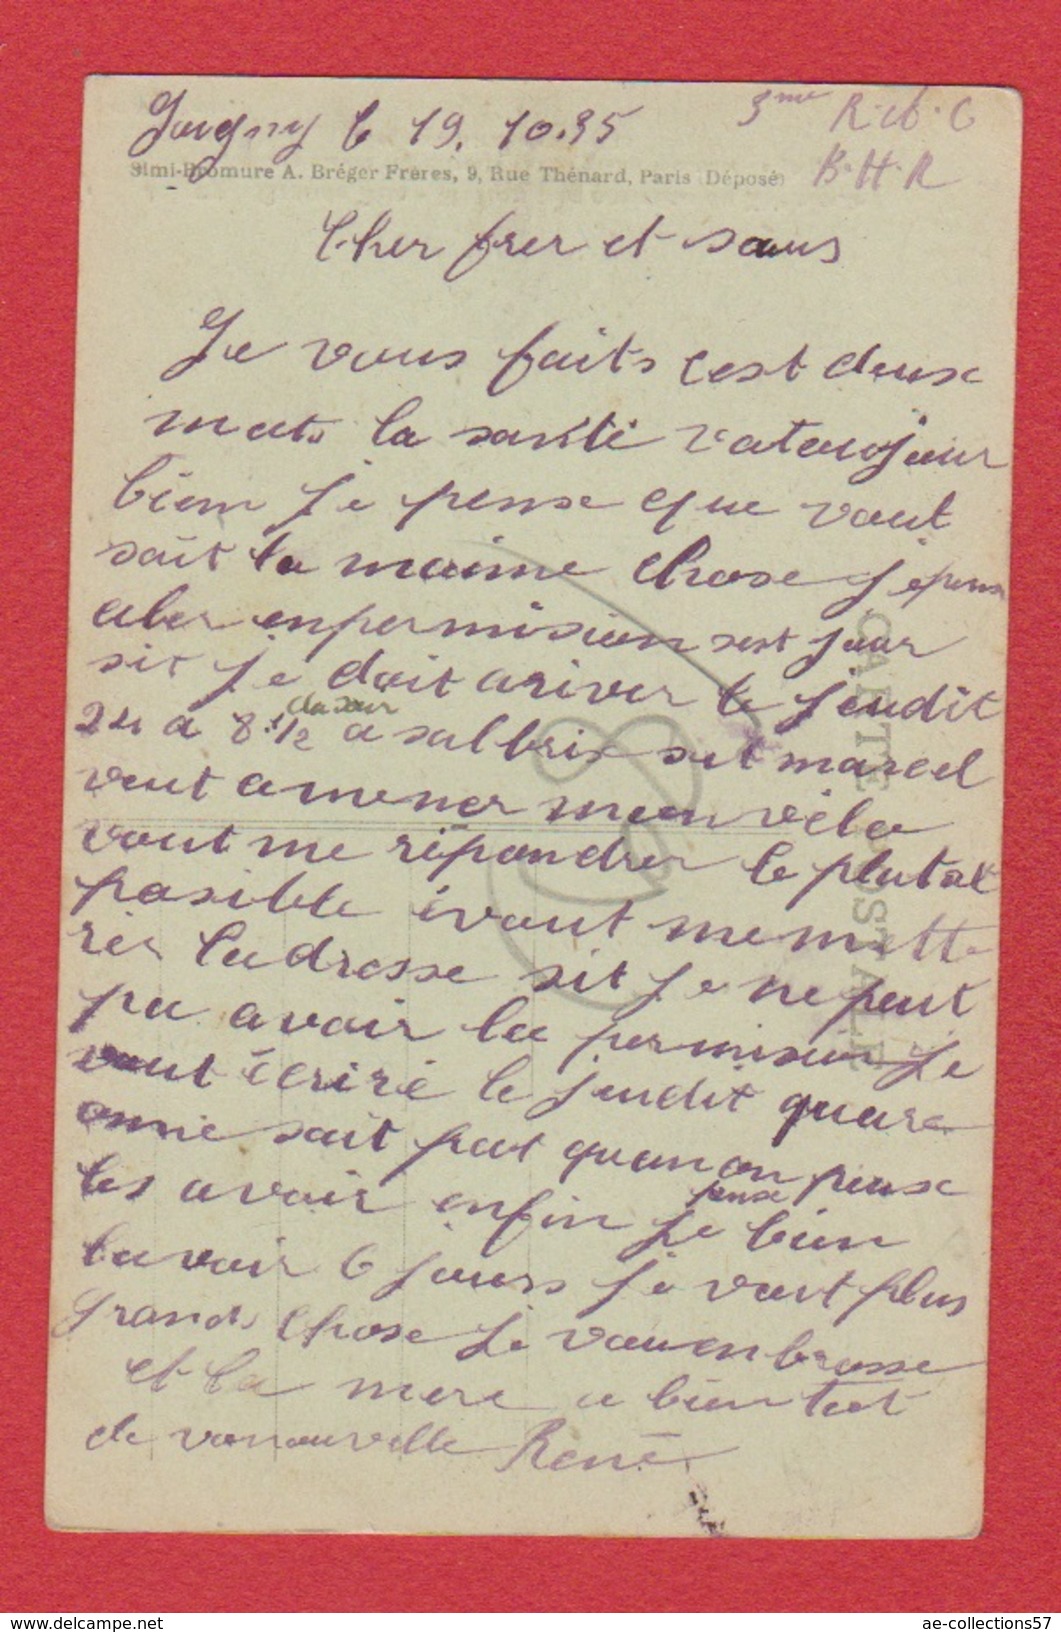 Juigny le 19. 10.35
3me R. d. C
B. H. R
Simi-Bromure A. Bréger Frères, 9, Rue Thénard, Paris (Déposé)
Cher frer et sœurs
Je vous faits c'est deux
mots la santé vatoujour
bien je pense que vout
sait la maime chose je pense
aler enpermision sest jour
sit je doit ariver le jeudit
24 a 8 1/2 du soir a salbris sit marcel
veut amener mon vélo
vout me répondrer le plutot
posible ivout me mette
rer ladresse sit je ne peut
pa avoir la permision je
vout écriré le jeudit quare
onnie sait pat quanon peuse
les avoir enfin je pense bien
lavoir 6 jours je vait plus
grands chose je vou enbrasse
et la mere a bien tot
de vonouvelle René
CARTE POSTALE
www.delcampe.net
ae-collections57